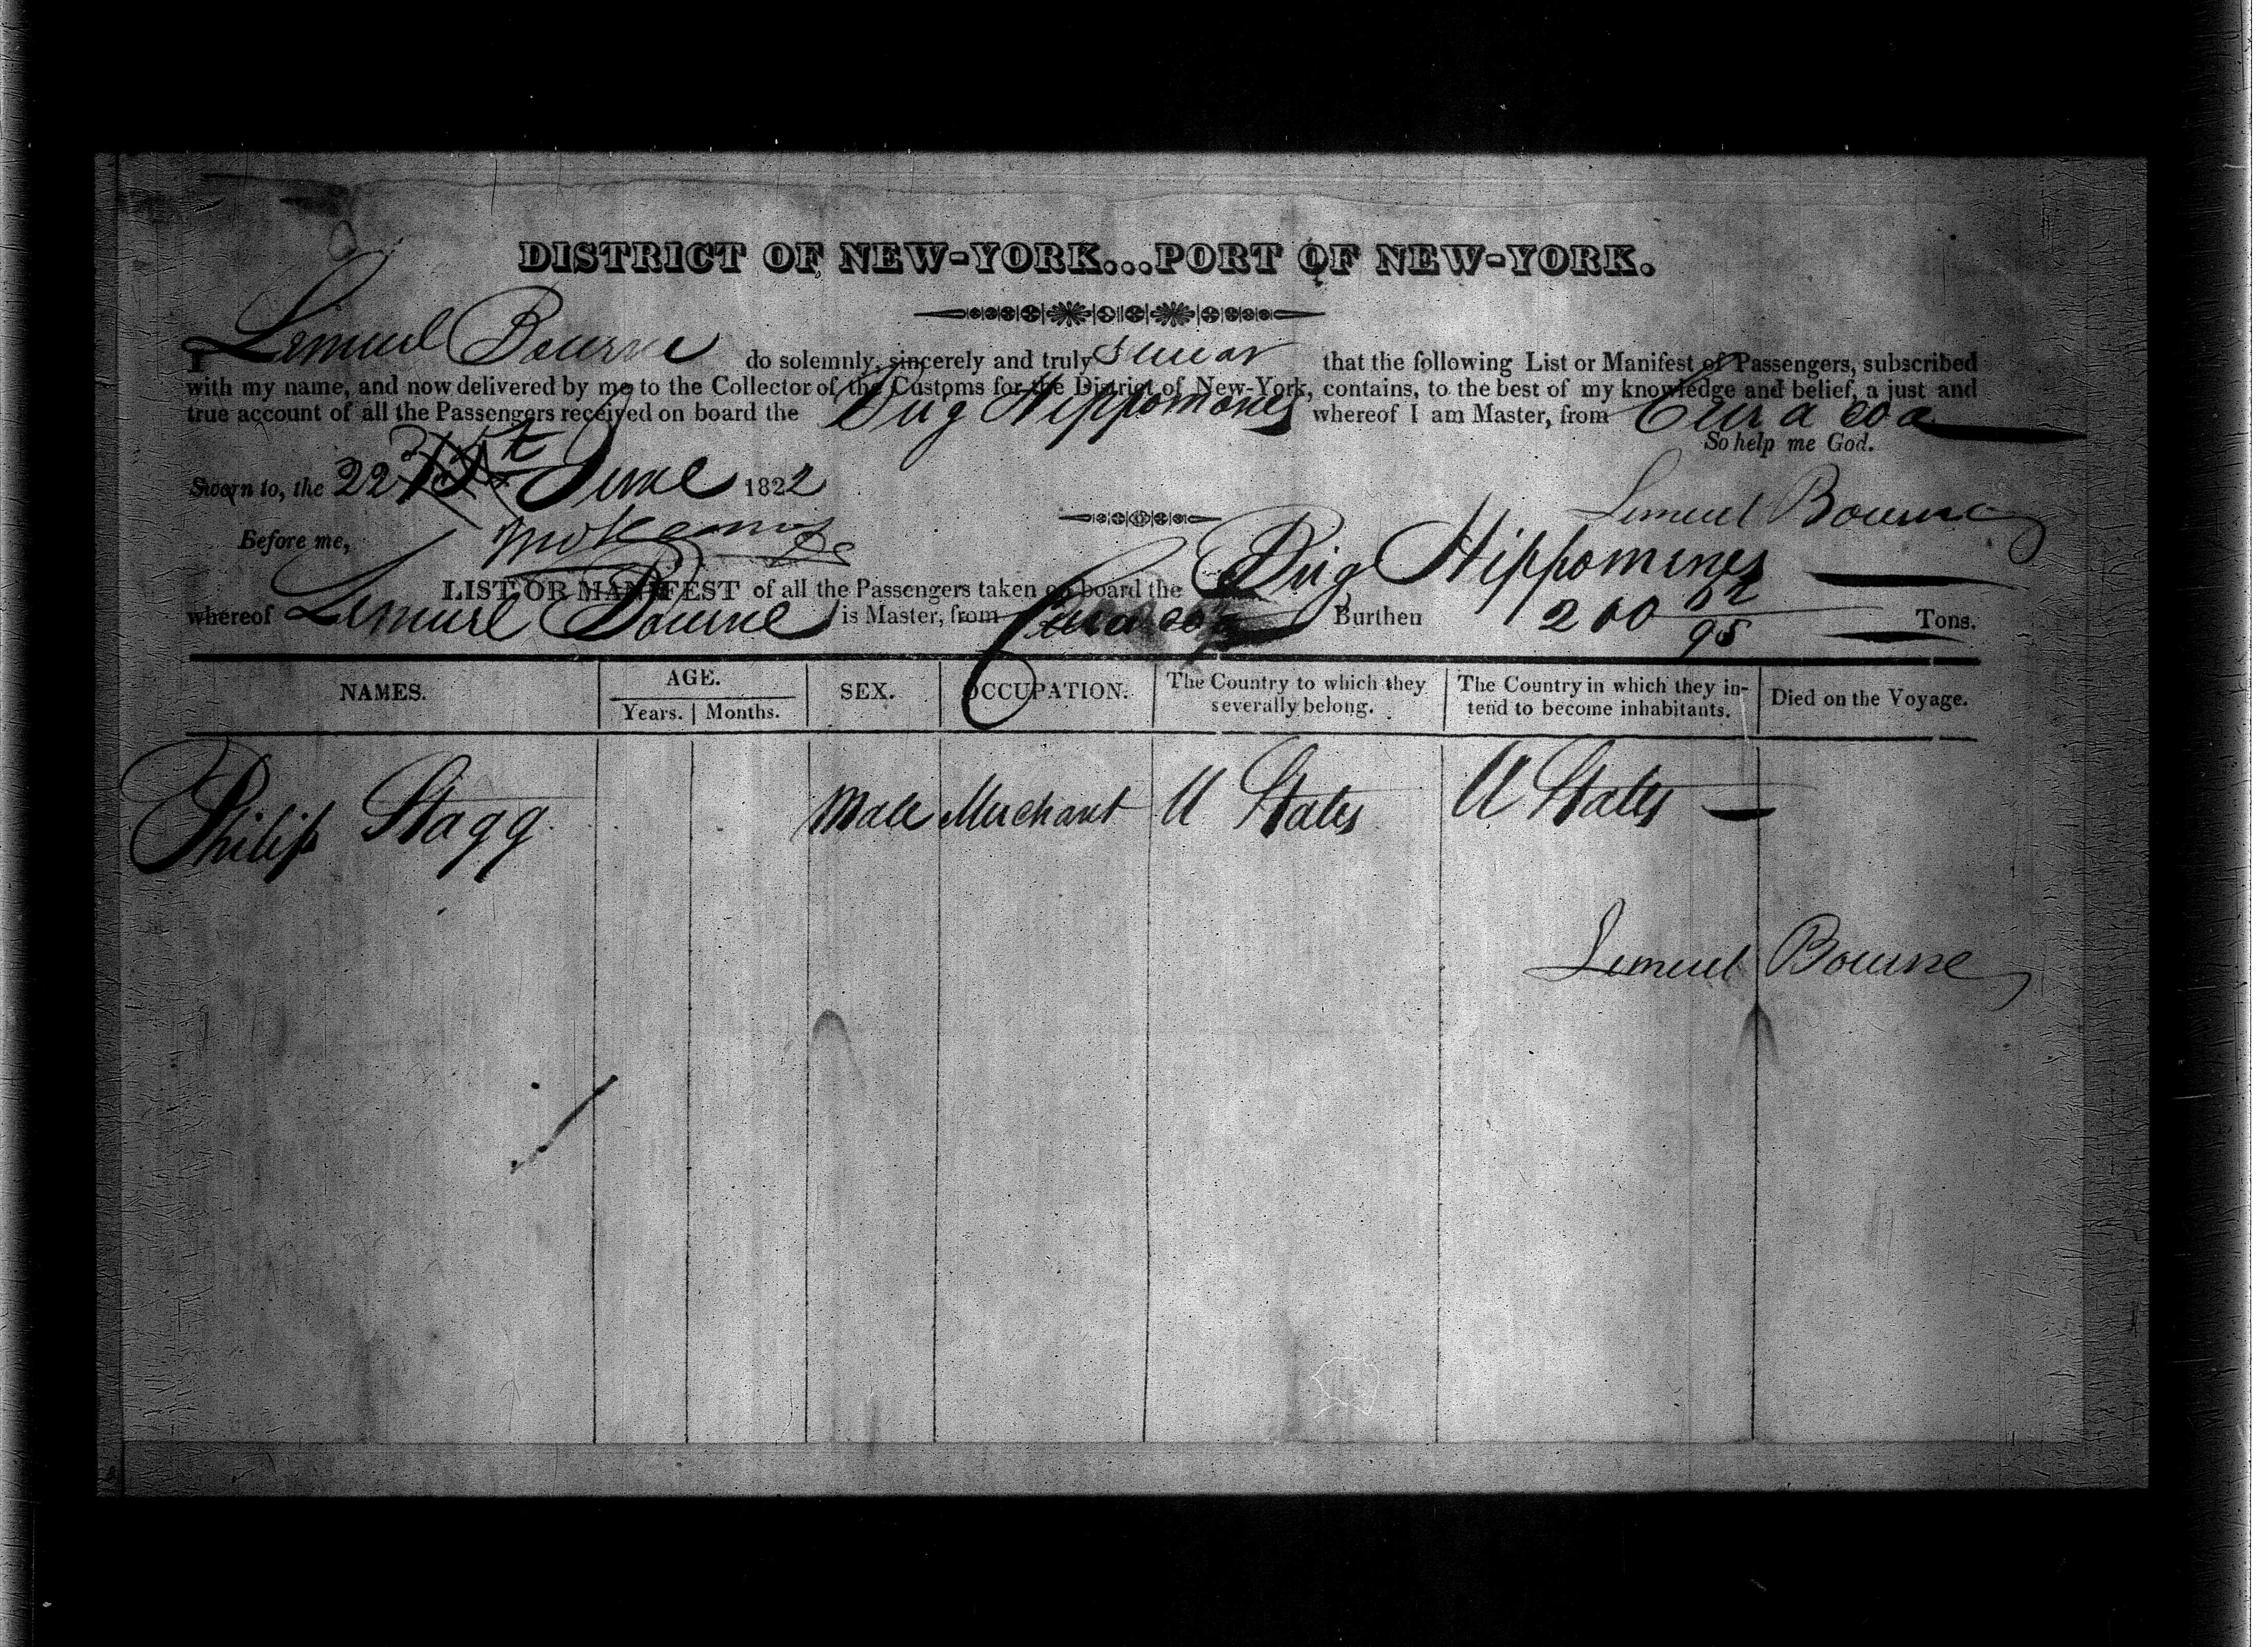 DISTRICT OF NEW-YORK...PORT OF NEW-YORK.
I Lemuel Bourne do solemnly, sincerely and truly swear that the following List or Manifest of Passengers, subscribed
with my name, and now delivered by me to the Collector of the Customs for the District of New-York, contains, to the best of my knowledge and belief, a just and
true account of all the Passengers received on board the Brig Hippomenes whereof I am Master, from Curacoa
So help me God.
Sworn to, the 22 June 1822
Lemuel Bourne
Before me,
LIST OR MANIFEST of all the Passengers taken on board the Brig Hippomenes
whereof Lemuel Bourne is Master, from Curacoa Burthen Tons.
NAMES. AGE. SEX. OCCUPATION. The Country to which they severally belong. The Country in which they intend to become inhabitants. Died on the Voyage.
Years. Months.
Philip Stagg Male Merchant U States U States
Lemuel Bourne